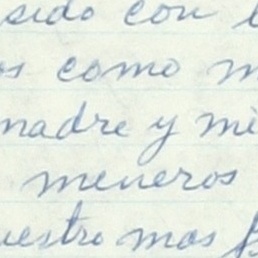 sido con
como
madre y mi
meneros
uestro mas